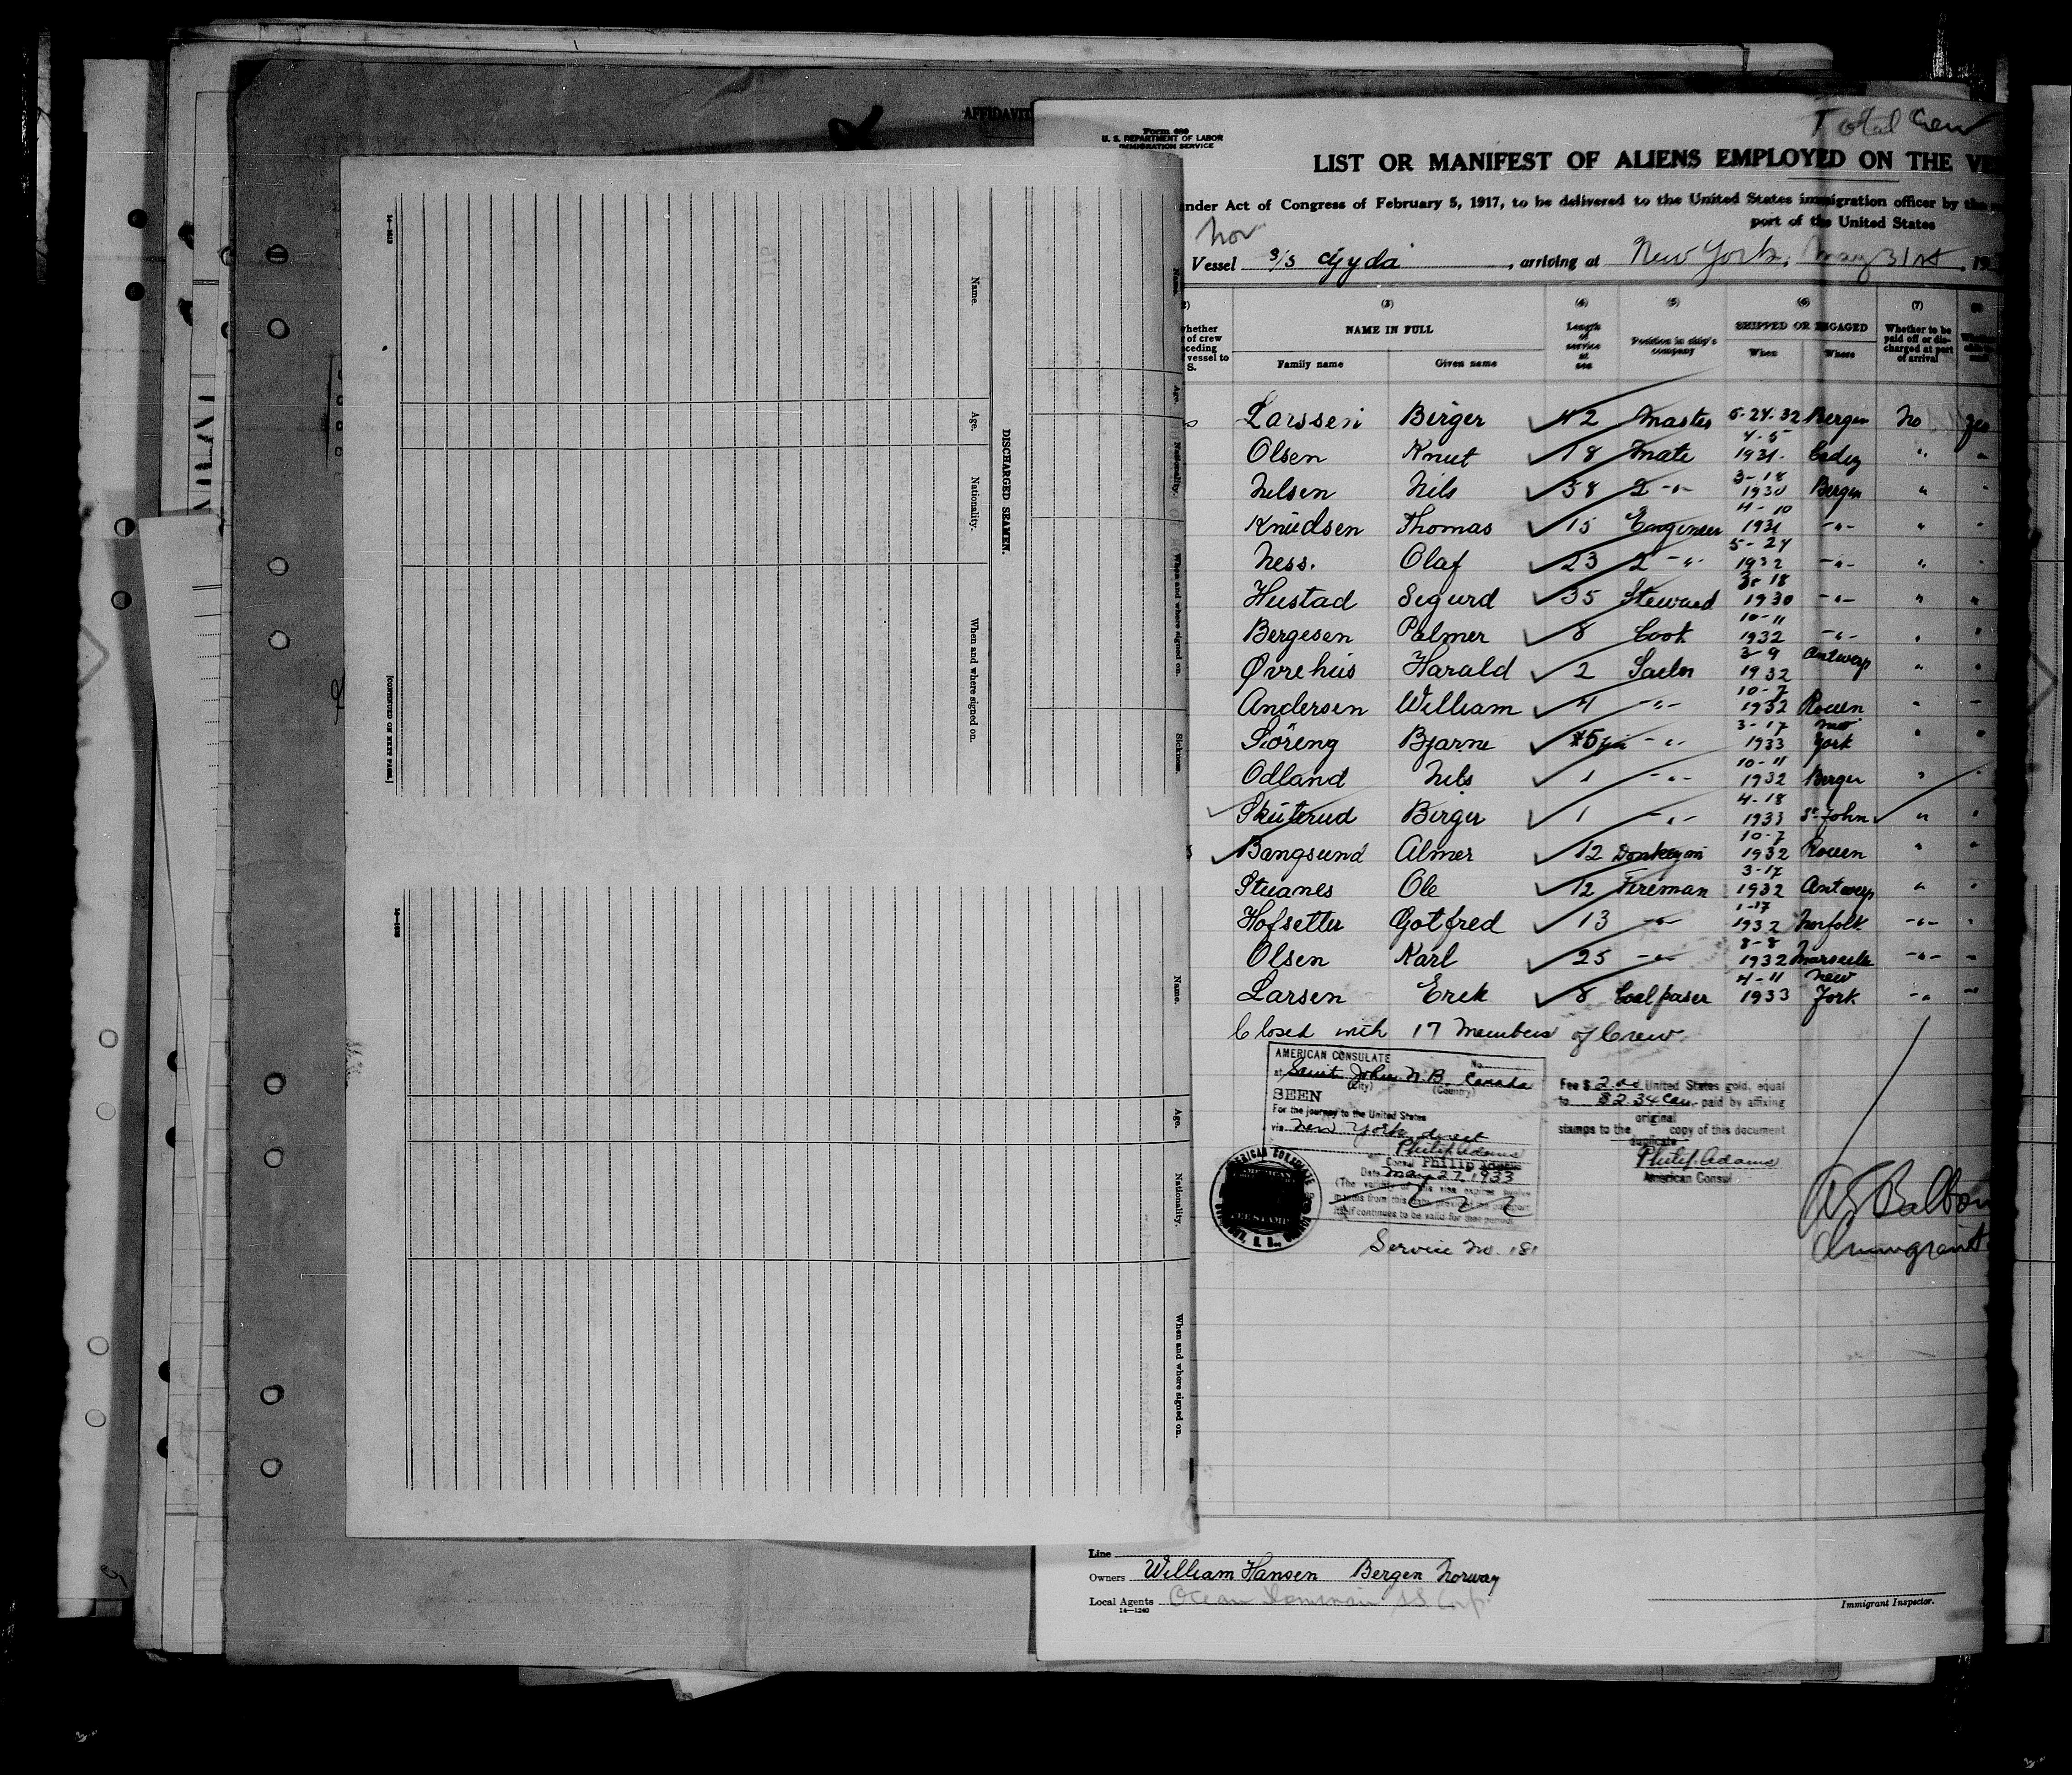 AFFIDAVIT
14-1240
Name.
Age.
Nationality.
When and where signed on.
DISCHARGED SEAMEN.
[CONTINUED ON NEXT PAGE.]
Name.
Age.
Nationality.
When and where signed on.
Sickness.
Name.
Age.
Nationality.
When and where signed on.
Total Crew
Form 680
U. S. DEPARTMENT OF LABOR
IMMIGRATION SERVICE
LIST OR MANIFEST OF ALIENS EMPLOYED ON THE VE
nder Act of Congress of February 5, 1917, to be delivered to the United States immigration officer by the
port of the United States
Nor
Vessel S/S Gyda, arriving at New York, May 31st, 19
(3) (4) (5) (6) (7)
hether of crew ceding vessel to S.
NAME IN FULL
Family name Given name
Length of service at sea
Position in ship's company
SHIPPED OR ENGAGED
When Where
Whether to be paid off or discharged at port of arrival
Larssen Birger 42 Master 5-24-32 Bergen No Yes
Olsen Knut 18 Mate 4-5 1931. Cadiz " "
Nilsen Nils 38 2 -"- 3-18 1930 Bergen " "
Knudsen Thomas 15 Engineer 4-10 1931 -"- " "
Ness. Olaf 23 2 -"- 5-24 1932 -"- " "
Hustad Sigurd 35 Steward 3-18 1930 -"- " "
Bergesen Palmer 8 Cook 10-11 1932 -"- " "
Øvrehus Harald 2 Sailor 3-9 1932 Antwerp " "
Andersen William 4 -"- 10-7 1932 Rouen " "
Söreng Bjarne -"- 3-17 1933 New York " "
Odland Nils 1 -"- 10-11 1932 Bergen " "
Skuterud Birger 1 -"- 4-18 1933 St John " "
Bangsund Almer 12 Donkeyman 10-7 1932 Rouen " "
Stuanes Ole 12 Fireman 3-17 1932 Antwerp " "
Hofsetter Gotfred 13 -"- 1-17 1932 Norfolk -"- "
Olsen Karl 25 -"- 8-8 1932 Marseille -"- "
Larsen Erek 8 Coalpaser 4-11 1933 New York -"- "
Closed with 17 Members of Crew.
AMERICAN CONSULATE No.
at Saint John N.B. Canada
(City) (Country)
SEEN
For the journey to the United States
via New York direct
Philip Adams
Consul Philip Adams
Date May 27, 1933
(The validity of this visa expires twelve
months from this date provided the passport
itself continues to be valid for that period)
Fee $ 2.00 United States gold, equal
to $2.34 Can. paid by affixing
original
stamps to the copy of this document
duplicate
Philip Adams
American Consul
Service No. 181
Immigrant
Line
Owners William Hansen Bergen Norway
Local Agents Ocean Dominion SS Corp.
14-1240
Immigrant Inspector.